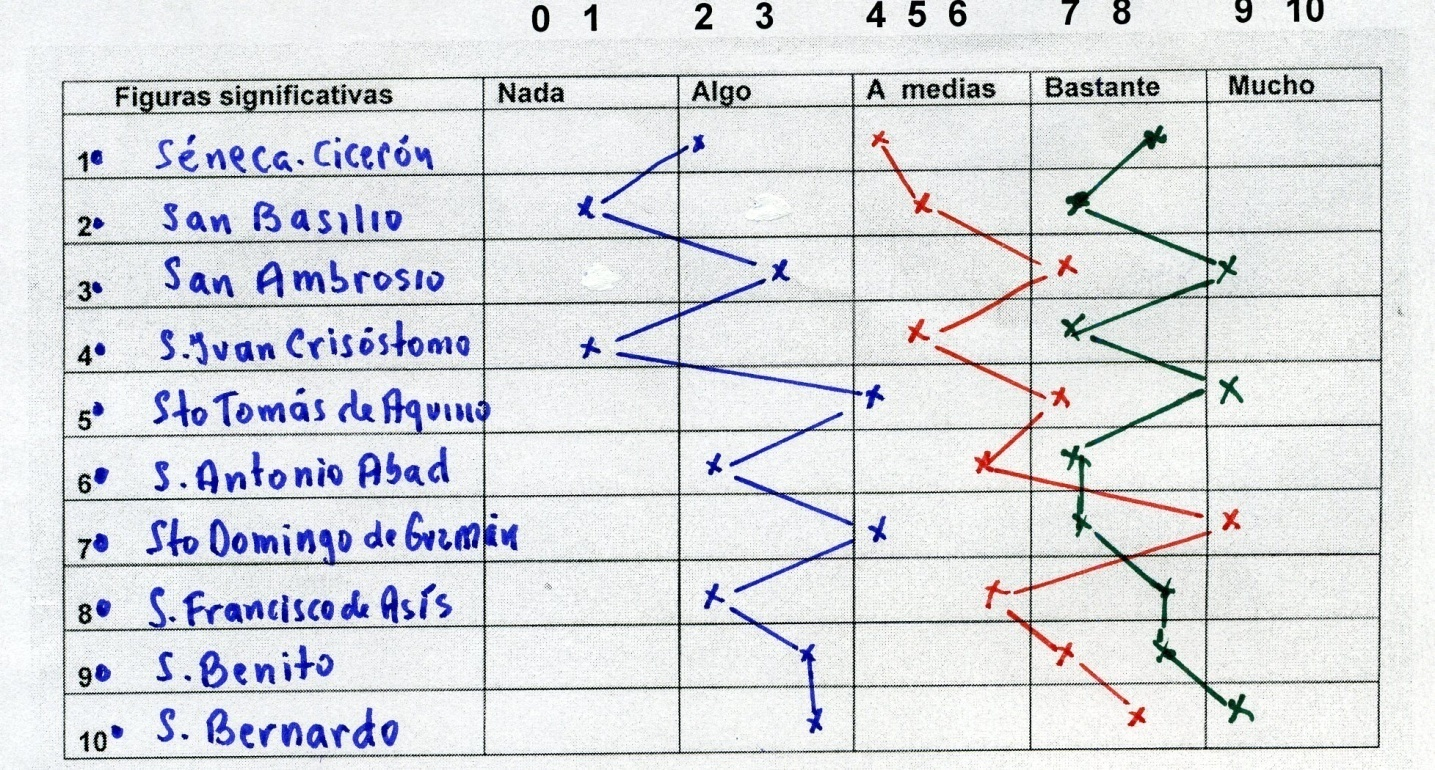 0 1 2 3 4 5 6 7 8 9 10
Figuras significativas Nada Algo A medias Bastante Mucho
1º Séneca. Cicerón
2º San Basilio
3º San Ambrosio
4º S. Juan Crisóstomo
5º Sto Tomás de Aquino
6º S. Antonio Abad
7º Sto Domingo de Guzmán
8º S. Francisco de Asís
9º S. Benito
10º S. Bernardo